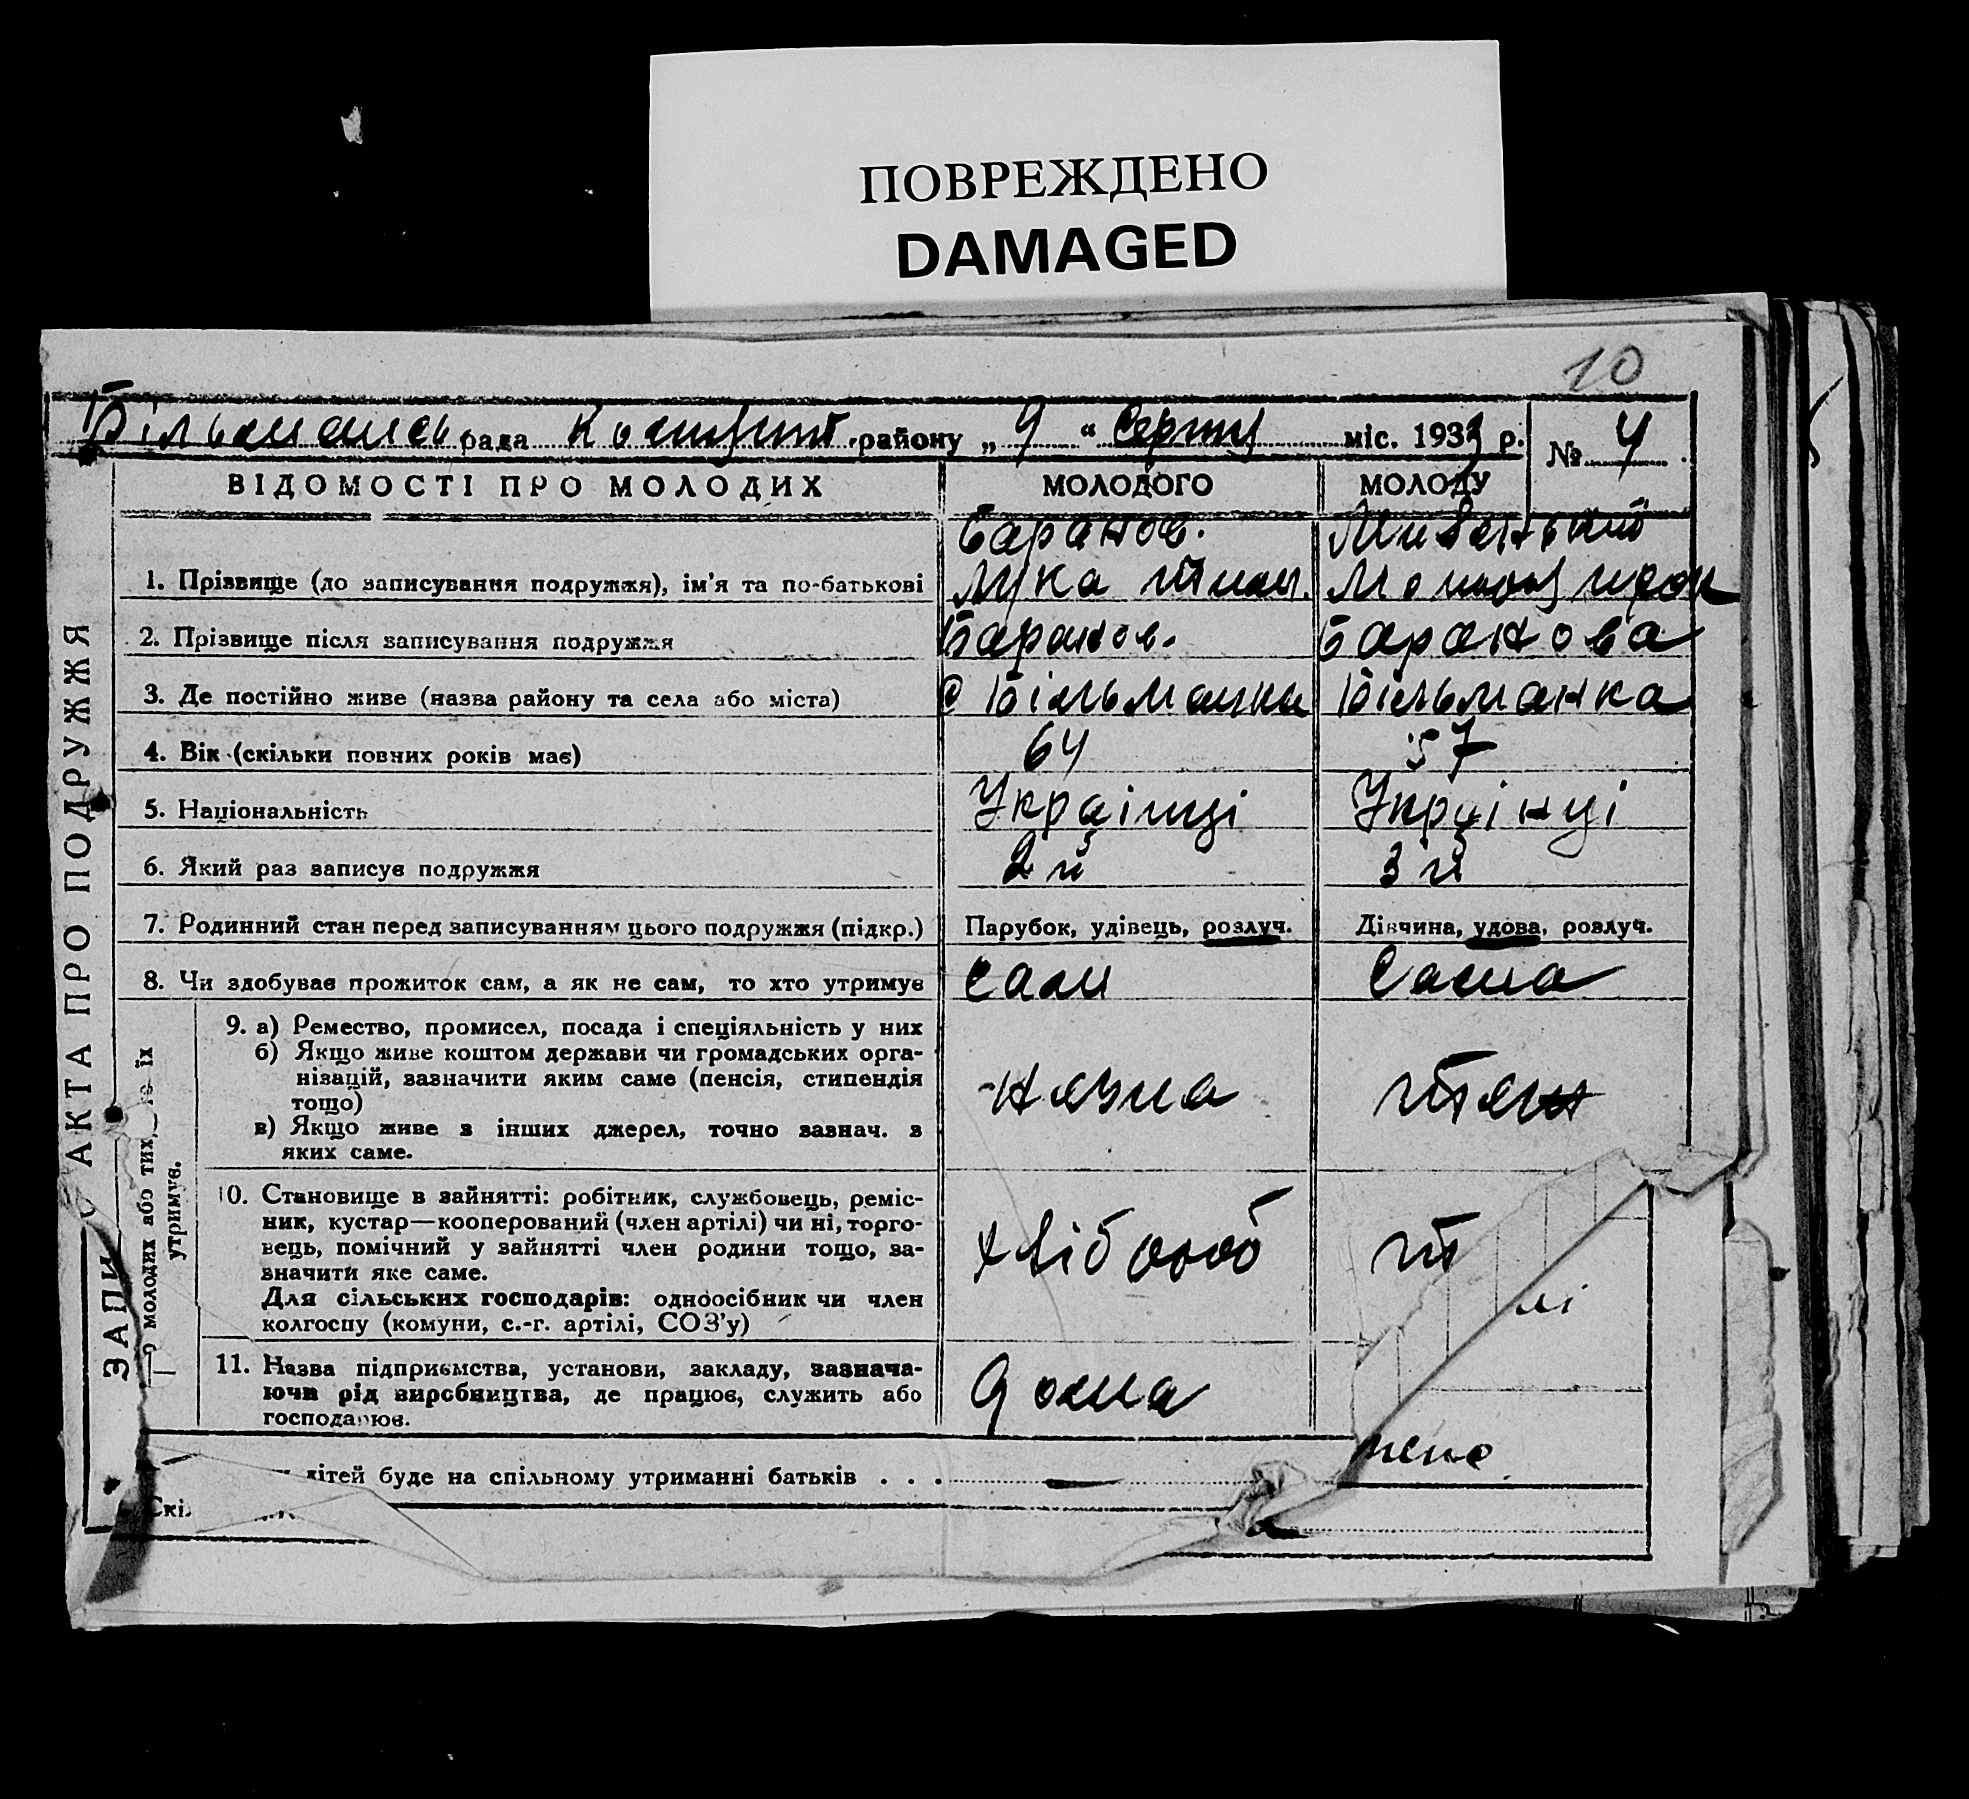 ПОВРЕЖДЕНО
DAMAGED
10
рада району „ 9 “ міс. 1933 р. № 4
ВІДОМОСТІ ПРО МОЛОДИХ МОЛОДОГО МОЛОДУ
Баранов.
1. Прізвище (до записування подружжя), ім’я та по-батькові Лука
2. Прізвище після записування подружжя Баранов. Баранова
3. Де постійно живе (назва району та села або міста) с Більманка Більманка
4. Вік (скільки повних років має) 64 57
5. Національність Українці Українці
6. Який раз записує подружжя 2й 3й
7. Родинний стан перед записуванням цього подружжя (підкр.) Парубок, удівець, розлуч. Дівчина, удова, розлуч.
8. Чи здобуває прожиток сам, а як не сам, то хто утримує Сам Сама
9. а) Ремество, промисел, посада і спеціяльність у них
б) Якщо живе коштом держави чи громадських орга-
нізацій, зазначити яким саме (пенсія, стипендія
тощо)
в) Якщо живе з інших джерел, точно зазнач. з
яких саме.
10. Становище в зайнятті: робітник, службовець, реміс-
ник, кустар—кооперований (член артілі) чи ні, торго-
вець, помічний у зайнятті член родини тощо, за-
значити яке саме.
Для сільських господарів: одноосібник чи член
колгоспу (комуни, с.-г. артілі, СОЗ’у)
11. Назва підприємства, установи, закладу, зазнача-
ючи рід виробництва, де працює, служить або
господарює. дома
дітей буде на спільному утриманні батьків . . . —
АКТА ПРО ПОДРУЖЖЯ
молодих або тих, їх
утримує.